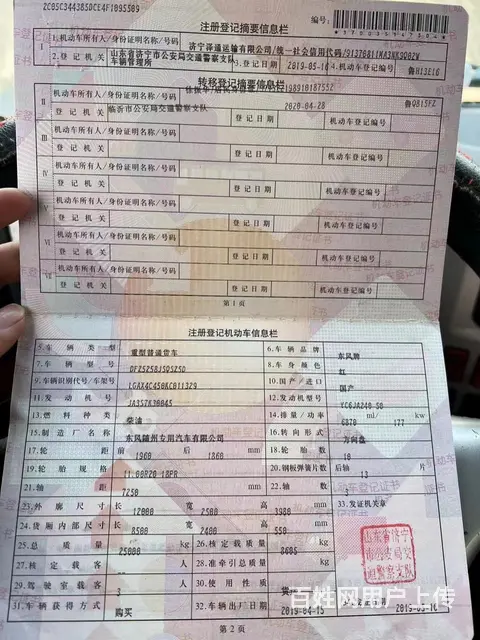 2C05C344385DCE4F1B95589
编号:
注册登记摘要信息栏
I
1.机动车所有人/身份证明名称/号码
济宁泽道运输有限公司/统一社会信用代码/
2.登记机关
山东省济宁市公安局交通警察支队车辆管理所
3.登记日期
2019-05-14
4.机动车登记编号
鲁H13E16
转移登记摘要信息栏
II
机动车所有人/身份证明名称/号码
登记机关
临沂市公安局交通警察支队
登记日期
2020-04-28
机动车登记编号
鲁Q815FZ
III
机动车所有人/身份证明名称/号码
登记机关
登记日期
机动车登记编号
IV
机动车所有人/身份证明名称/号码
登记机关
登记日期
机动车登记编号
V
机动车所有人/身份证明名称/号码
登记机关
登记日期
机动车登记编号
VI
机动车所有人/身份证明名称/号码
登记机关
登记日期
机动车登记编号
VII
机动车所有人/身份证明名称/号码
登记机关
登记日期
机动车登记编号
第1页
注册登记机动车信息栏
5.车辆类型
重型普通货车
6.车辆品牌
东风牌
7.车辆型号
DFZ5258JSQSZ5D
8.车身颜色
红
9.车辆识别代号/车架号
LGAX4C450KC0113Z9
10.国产/进口
国产
11.发动机号
JA3S7K30045
12.发动机型号
YC6JA240-50
13.燃料种类
柴油
14.排量/功率
6870 ml 177 kw
15.制造厂名称
东风随州专用汽车有限公司
16.转向形式
方向盘
17.轮距
前 1960 后 1860 mm
18.轮胎数
10
19.轮胎规格
11.00R20 18PR
20.钢板弹簧片数
后轴 13 片
21.轴距
7250 mm
22.轴数
3
23.外廓尺寸
长 12000 宽 2500 高 3980 mm
33.发证机关章
24.货厢内部尺寸
长 8500 宽 2400 高 550 mm
25.总质量
25000 kg
26.核定载质量
kg
27.核定载客
人
28.准牵引总质量
kg
29.驾驶室载客
3 人
30.使用性质
货运
31.车辆获得方式
购买
32.车辆出厂日期
2019-04-15
2019-05-14
山东省济宁市公安局交通警察支队
第2页
百姓网用户上传